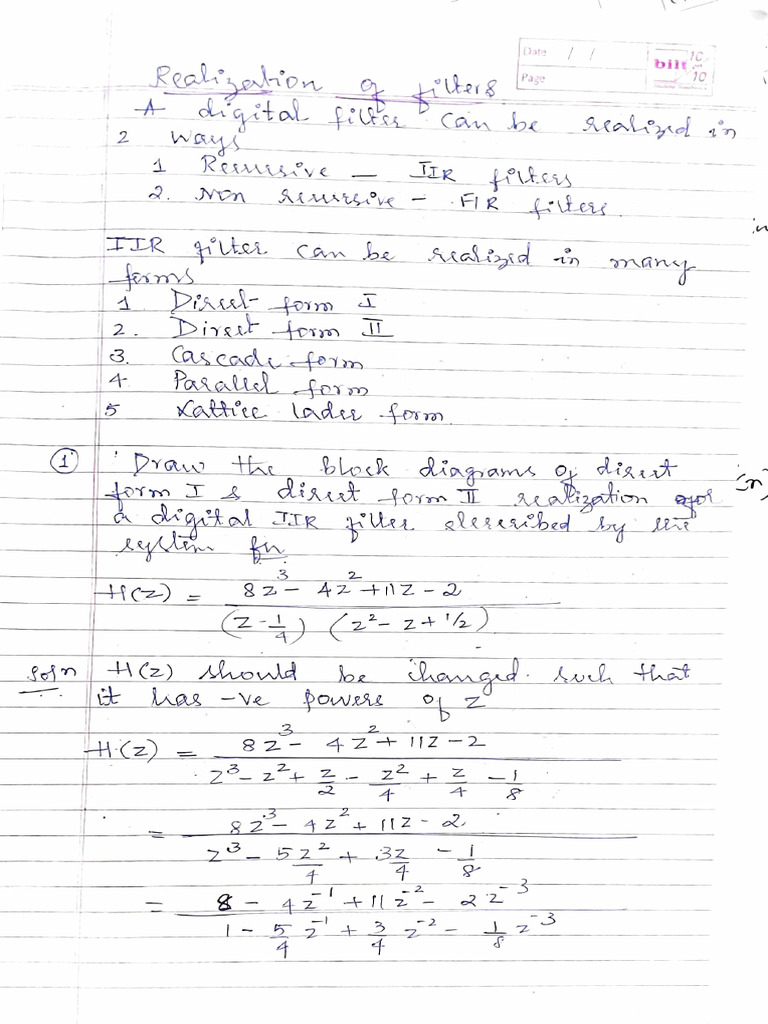 Date / /
Page
bilt 10 on 10
Realization of filters
A digital filter can be realized in
2 ways
1 Recursive — IIR filters
2. Non recursive – FIR filters.
IIR filter can be realized in many
forms
1. Direct form I
2. Direct form II
3. Cascade form
4. Parallel form
5 Lattice lader form.
① Draw the block diagrams of direct
form I & direct form II realization for
a digital IIR filter described by the
system fn
H(z) = (8z³ - 4z² + 11z - 2) / ((z - 1/4) (z² - z + 1/2))
Soln H(z) should be changed such that
it has -ve powers of z
H(z) = (8z³ - 4z² + 11z - 2) / (z³ - z² + z/2 - z²/4 + z/4 - 1/8)
= (8z³ - 4z² + 11z - 2) / (z³ - 5z²/4 + 3z/4 - 1/8)
= (8 - 4z⁻¹ + 11z⁻² - 2z⁻³) / (1 - 5/4 z⁻¹ + 3/4 z⁻² - 1/8 z⁻³)